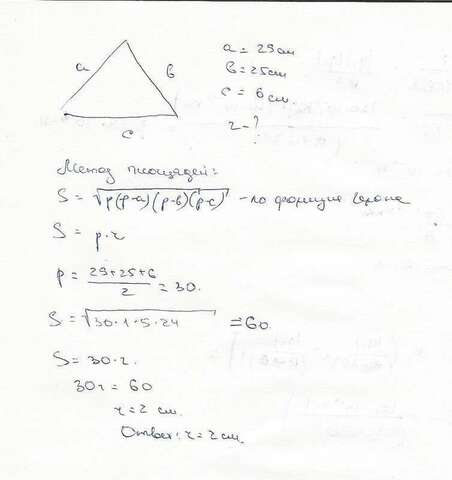 a
в
c
a = 29 см
в = 25 см
c = 6 см.
r - ?
Метод площадей:
S = √p(p-a)(p-в)(p-c) - по формуле Герона
S = p·r
p = 29+25+6 / 2 = 30.
S = √30·1·5·24 = 60.
S = 30·r.
30r = 60
r = 2 см.
Ответ: r = 2 см.